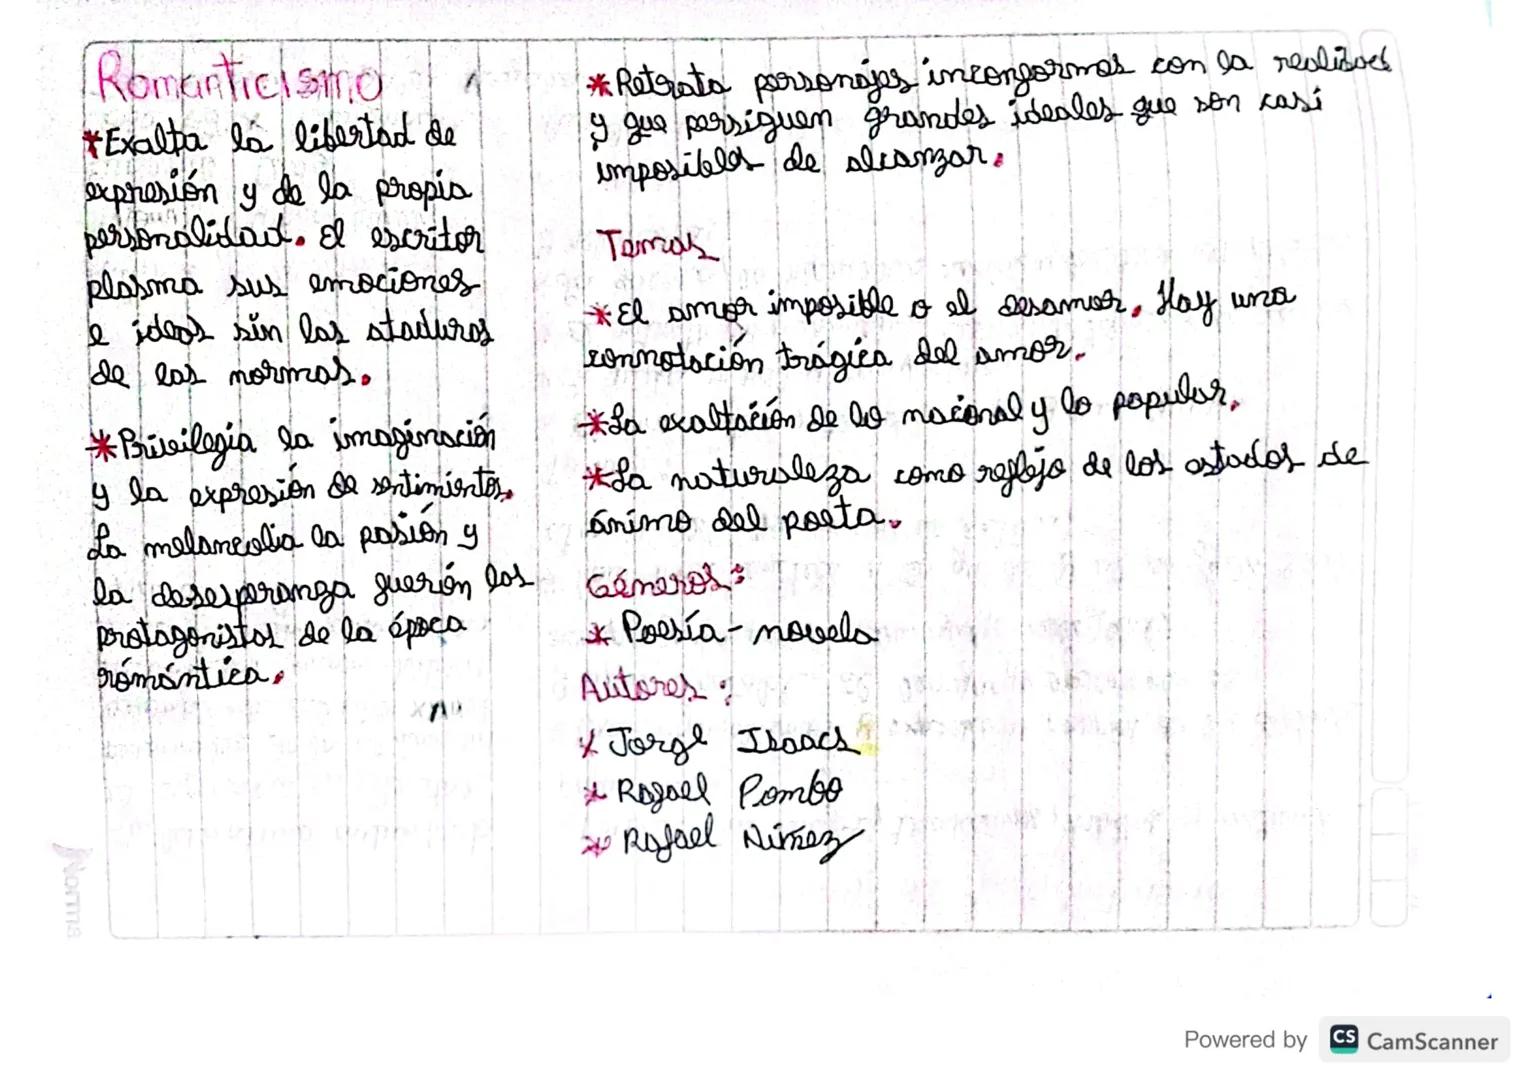 Romanticismo
*Exalta la libertad de
expresión y de la propia
personalidad. El escritor
plasma sus emociones
e ideas sin las ataduras
de las normas.
*Privilegia la imaginación
y la expresión de sentimientos.
La melancolia la pasión y
la desesperanza fuerón los
protagonistas de la época
rómántica.
*Retrata personajes inconformes con la realidad
y que persiguen grandes ideales que son casi
imposibles de alcanzar.
Temas
*El amor imposible o el desamor. Hay una
connotación trágica del amor.
*La exaltación de lo nacional y lo popular.
*La naturaleza como reflejo de los estados de
ánimo del poeta.
Géneros:
* Poesía-novela
Autores:
* Jorge Isaacs
* Rafael Pombo
* Rafael Núñez
Norma
Powered by CS CamScanner